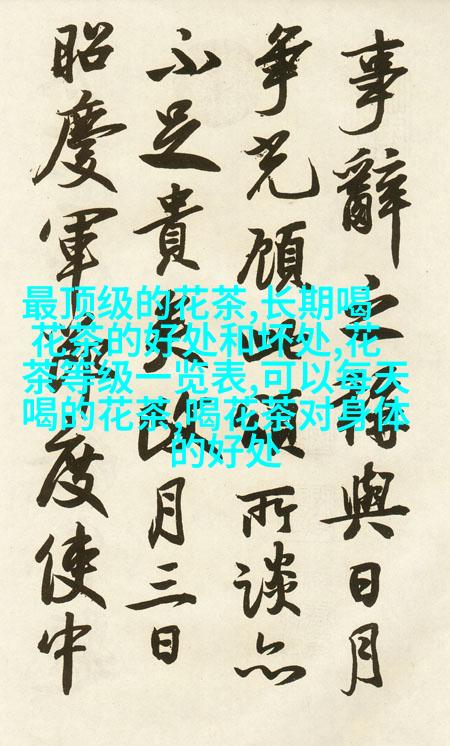 事辭之稱與日月
爭光顧此所談亦
不足貴月三日
昭慶軍節度使中
最顶级的花茶,长期喝
花茶的好处和坏处,花
茶等级一览表,可以每天
喝的花茶,喝花茶对身体
的好处